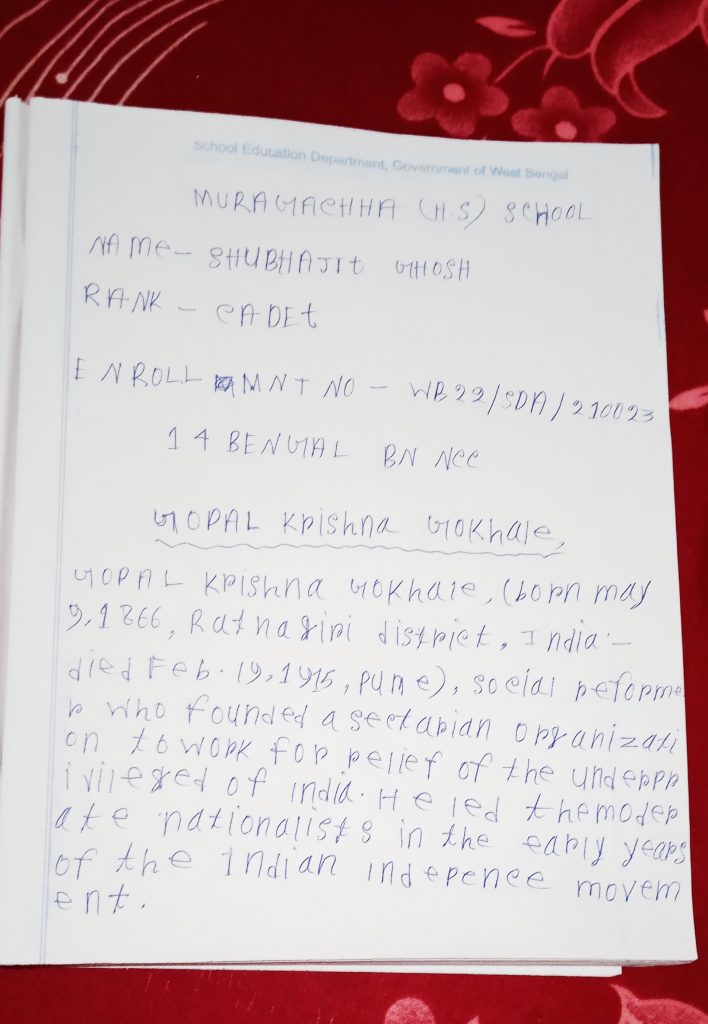 School Education Department, Government of West Bengal
MURAGACHHA (H.S) SCHOOL
NAMe- SHUBHAJIt GHOSH
RANK - CADEt
ENROLL MNT NO - WB22/SDA/210023
14 BENGAL BN NCC
GOPAL Krishna GOKhale,
GOPAL Krishna GOKhale, (born may
9,1866, Ratnagiri district, India-
died Feb. 19,1915, pune), social reforme
r who founded a sectarian organizati
on to work for relief of the underpr
ivileged of india. He led the moder
ate nationalists in the early years
of the Indian indepence movem
ent.